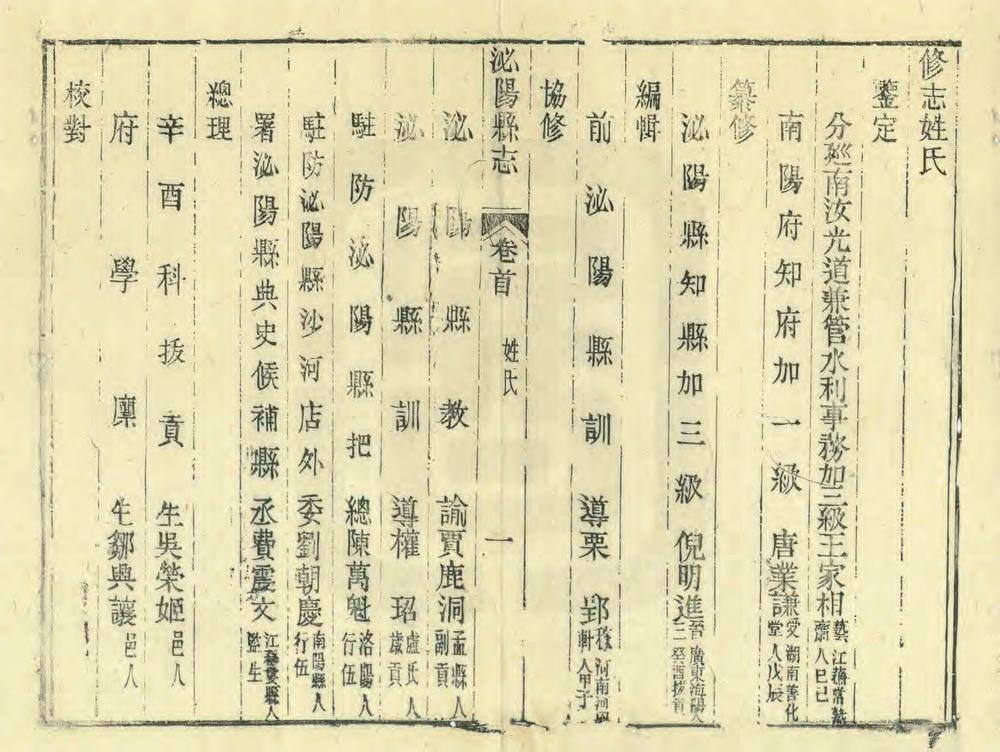 修志姓氏
鑒定
分廵南汝光道兼管水利事務加三級王家相藝齋江蘇常熟人己巳
南陽府知府加一級唐業謙受堂湖南善化人戊辰
纂修
泌陽縣知縣加三級倪明進晉三廣東海陽人癸酉拔貢
編輯
前泌陽縣訓導栗郢稼軒河南河人甲子
協修
泌陽縣志 卷首 姓氏 一
泌陽縣教諭賈鹿洞孟縣人副貢
泌陽縣訓導權玿盧氏人歲貢
駐防泌陽縣把總陳萬魁洛陽人行伍
駐防泌陽縣沙河店外委劉朝慶南陽縣人行伍
署泌陽縣典史候補縣丞費震文江蘇縣人監生
總理
辛酉科拔貢生吳榮姬邑人
府學廩生鄒興讓邑人
校對